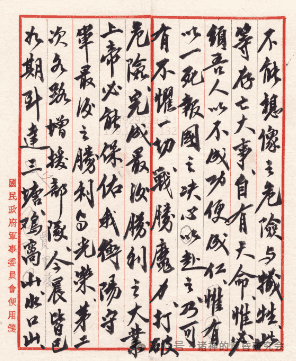 不能想像之危險與犧牲此
等存亡大事自有天命惟必
須吾人以不成功便成仁惟有
以一死報國之決心以赴之乃可
有不懼一切戰勝魔力打破
危險完成最後勝利之大業
上帝必能保佑我衡陽守
軍最後之勝利與光榮第二
次各路增援部隊今晨皆已
如期到達三塘鷄窩山水口山
國民政府軍事委員會便用箋